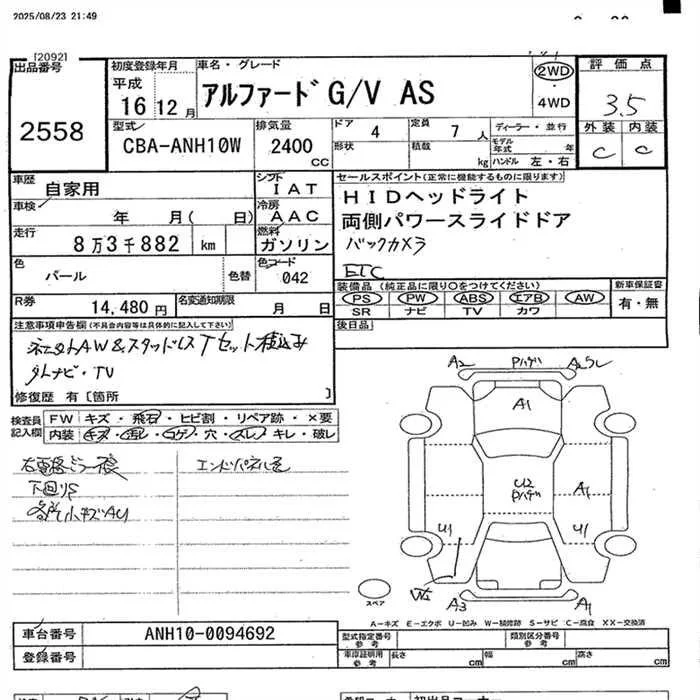 2025/08/23 21:49
[2092]
出品番号
2558
初度登録年月
平成
16 12月
車名・グレード
アルファード G/V AS
2WD
・
4WD
評価点
3.5
外装 内装
C C
型式
CBA-ANH10W
排気量
2400
CC
ドア 4
定員 7 人
形状
積載 kg
ディーラー・並行
モデル年式 年
ハンドル 左・右
車歴
自家用
シフト
IAT
車検
年 月( 日)
冷房
AAC
走行
8万3千882 km
燃料
ガソリン
色
パール
色替
色コード
042
R券
14,480円
名変通知期限
月 日
セールスポイント(正常に機能するものに限ります)
HIDヘッドライト
両側パワースライドドア
バックカメラ
ETC
装備品 (純正品に限り○をつけてください)
新車保証書
PS PW ABS エアB AW
SR ナビ TV カワ
有・無
後日品
注意事項申告欄(不具合内容等は具体的に記入して下さい)
ネニタトAW&スタッドレスTセット積込み
ダレナビ・TV
修復歴 有〔箇所 〕
検査員
記入欄
FW キズ・飛石・ヒビ割・リペア跡・×要
内装 キズ・汚レ・コゲ・穴・スレ・キレ・破レ
エンドパネル
下回りS
各所小キズAU
A2 Pハゲ A2 S
A1
U2
Pハゲ
A1
U1 U1
W2
A3 A1
スペア
A-キズ E-エクボ U-凹み W-補修跡 S-サビ C-腐食 XX-交換済
車台番号
ANH10-0094692
登録番号
型式指定番号
参考
類別区分番号
参考
車庫証明用
参考
長さ cm 幅 cm 高さ cm